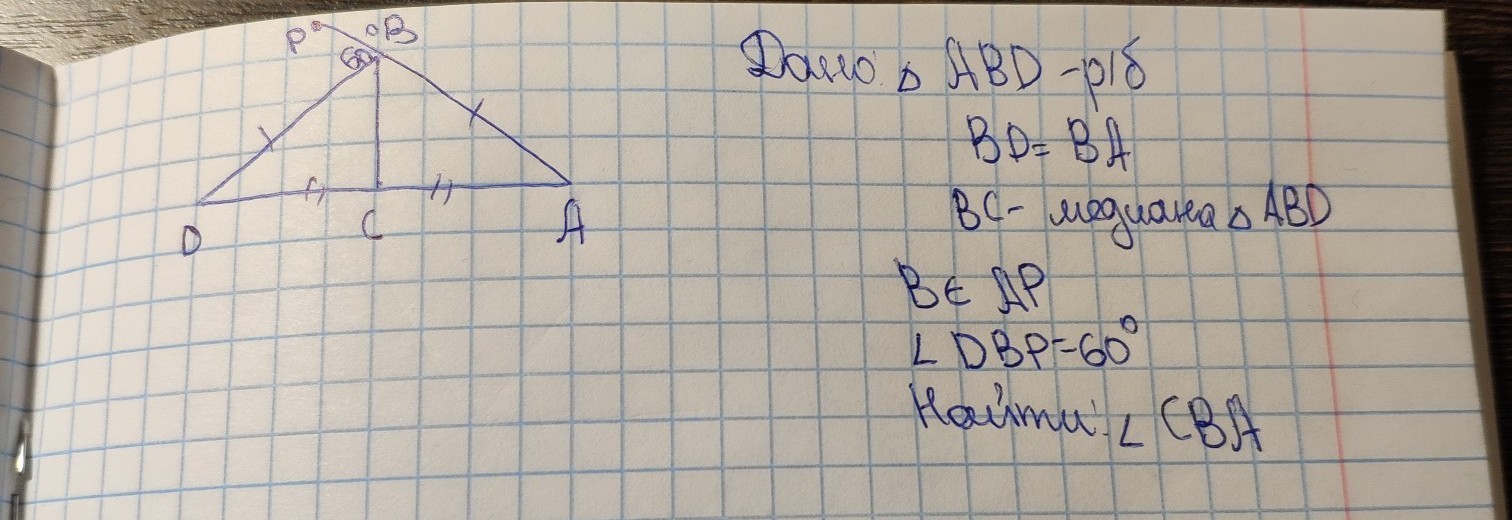 P B
60°
D C A
Дано: △ ABD - р/б
BD = BA
BC - медиана △ ABD
B ∈ AP
∠ DBP = 60°
Найти: ∠ CBA